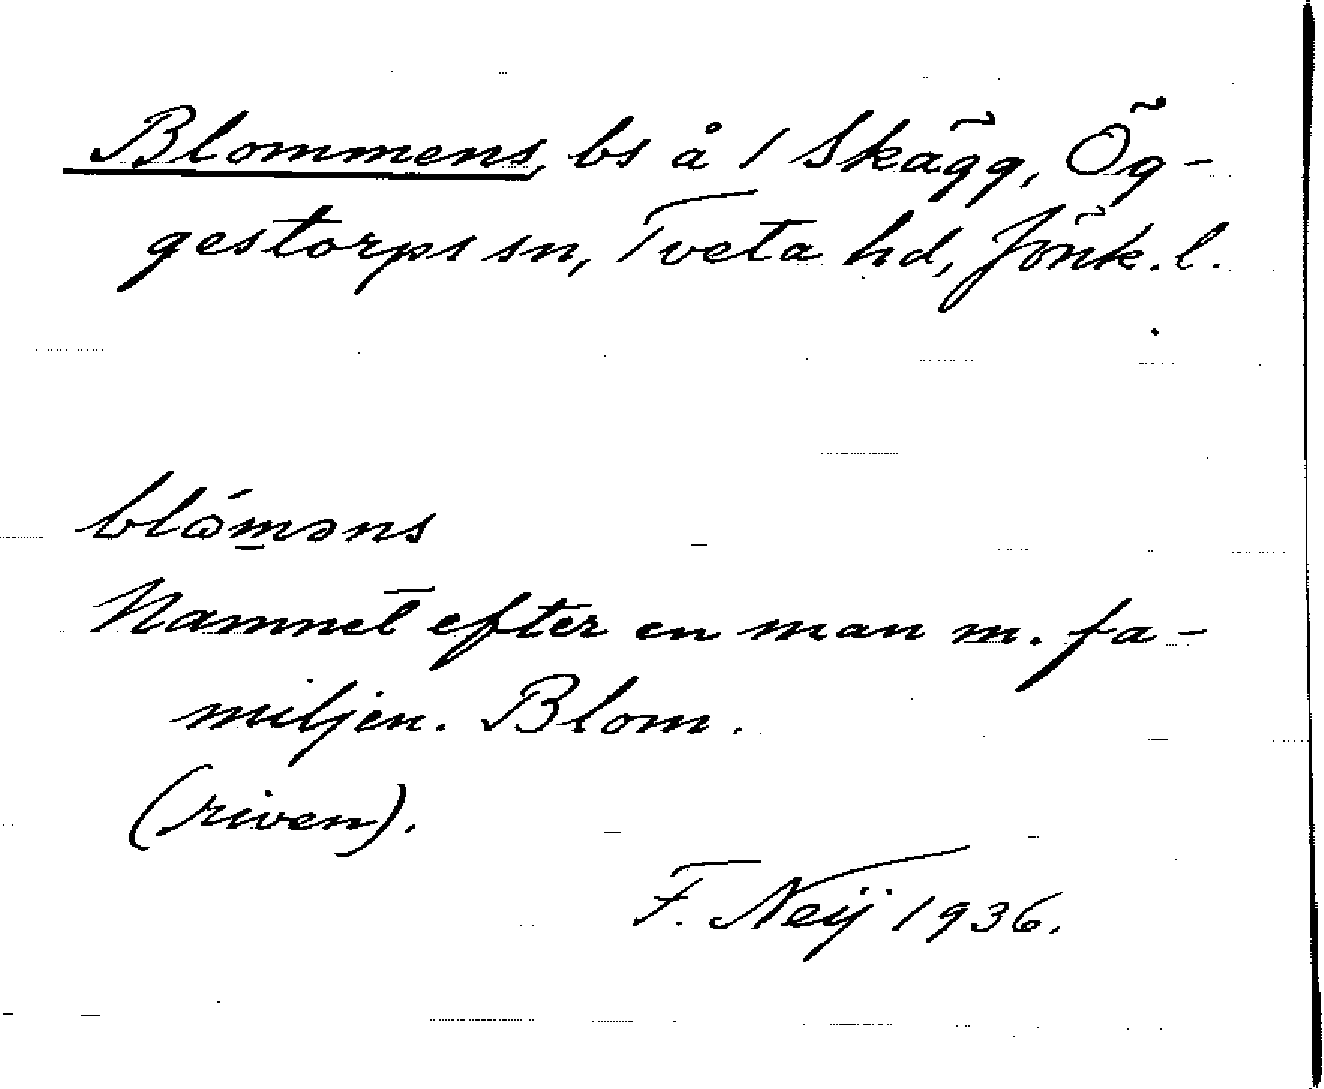 Blommens, bs å 1 Skägg, Ög-
gestorps sn, Tveta hd, Jönk. l.
blǿm̲əns
Namnet efter en man m. fa-
miljen. Blom.
(riven).
F. Neij 1936.